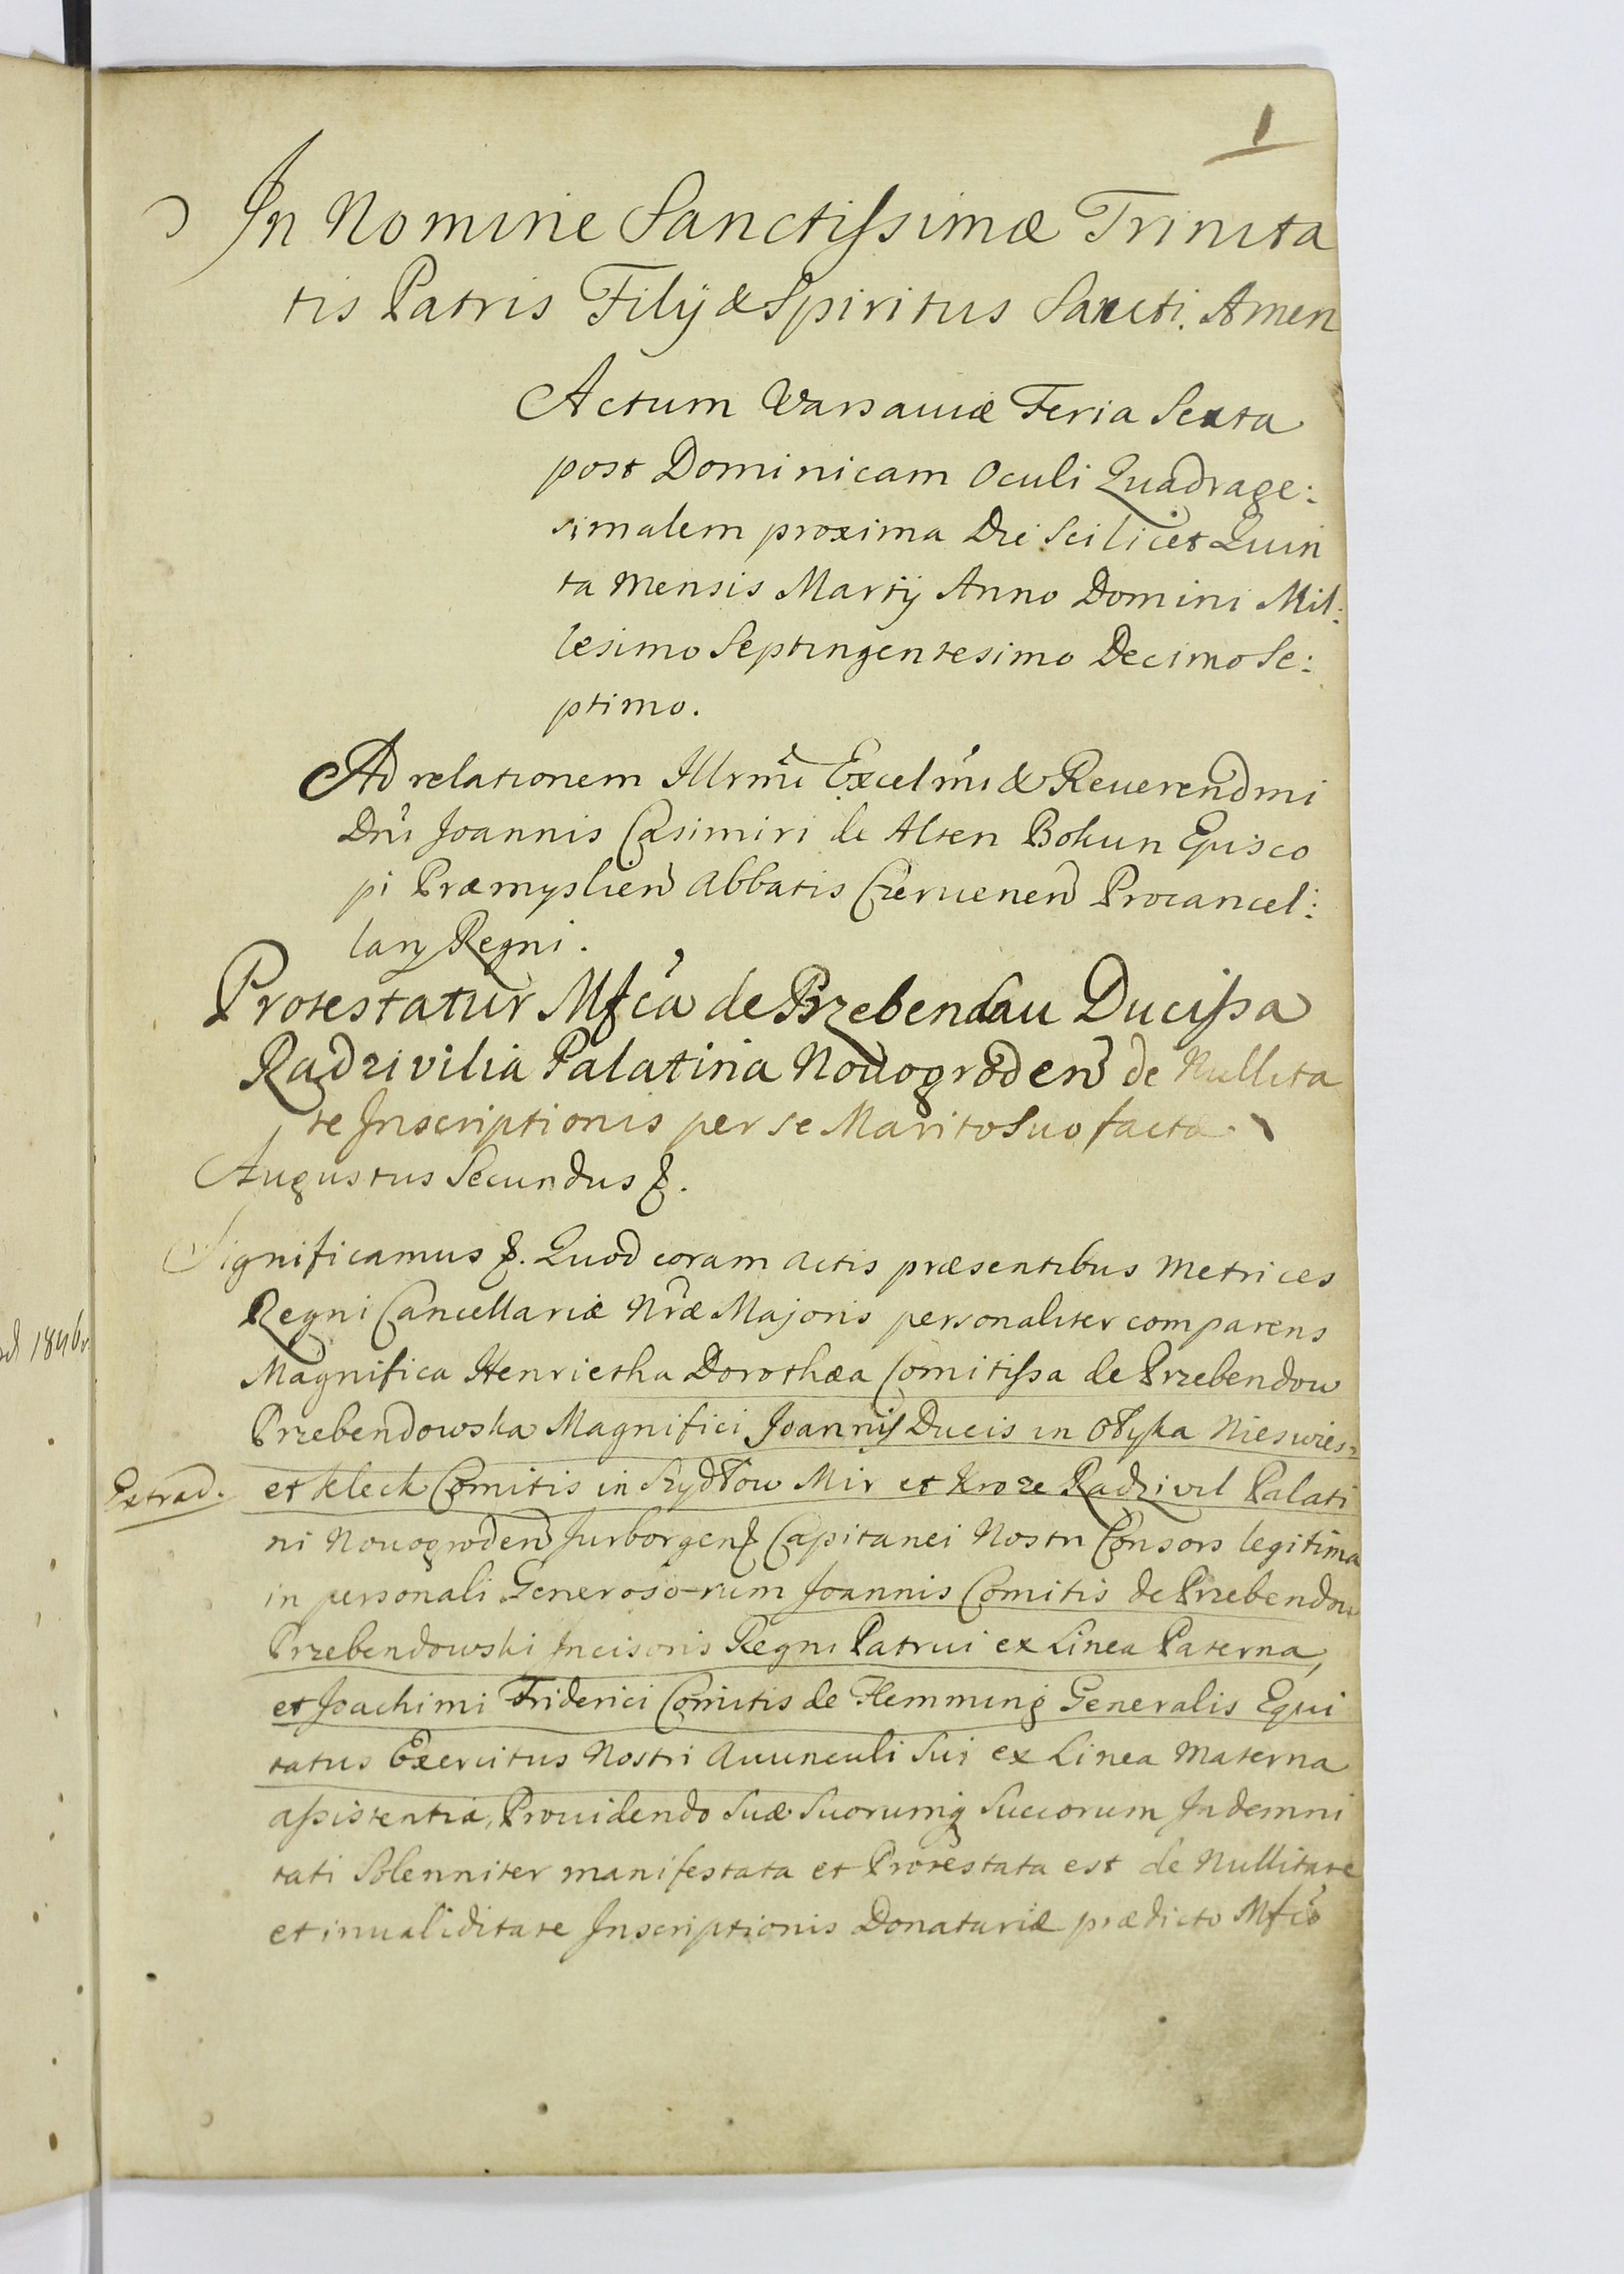 1
In Nomine Sanctissimæ Trinita
tis Patris Filÿ & Spiritus Sancti. Amen
Actum Varsaviæ Feria Sexta
post Dominicam Oculi Quadrage:
simalem proxima Die Scilicet Quin
ta Mensis Martÿ Anno Domini Mil:
lesimo Septingentesimo Decimo Se:
ptimo.
Ad relationem Illrmi Excelmi & Reuerendmi
Dni Joannis Casimiri de Alten Bokun Episco
pi Præmyslien Abbatis Czeruenen Procancel:
larÿ Regni.
Protestatur Mfca de Przebendau Ducissa
Radzivilia Palatina Nouogroden de Nullita
te Inscriptionis per se Marito Suo facta.
Augustus Secundus &.
Significamus &. Quod coram actis præsentibus Metrices
Regni Cancellariæ Nræ Majoris personaliter comparens
Magnifica Henrietha Dorothæa Comitissa de Przebendow
Przebendowska Magnifici Joannis Ducis in Ołyka Nieswies=
Extrad.
et Kleck Comitis in Szydłow Mir et Kroze Radzivil Palati
ni Nouogroden Jurborgen Capitanei Nostri Consors legitima
in personali Generosorum Joannis Comitis de Przebendow
Przebendowski Incisoris Regni Patrui ex Linea Paterna,
et Joachimi Friderici Comitis de Flemming Generalis Equi
tatus Exercitus Nostri Auunculi Sui ex Linea Materna
assistentia, Prouidendo Suæ Suorumq Succorum Indemni
tati Solenniter manifestata et Protestata est de Nullitate
et inualiditate Inscriptionis Donatariæ prædicto Mfco
1846